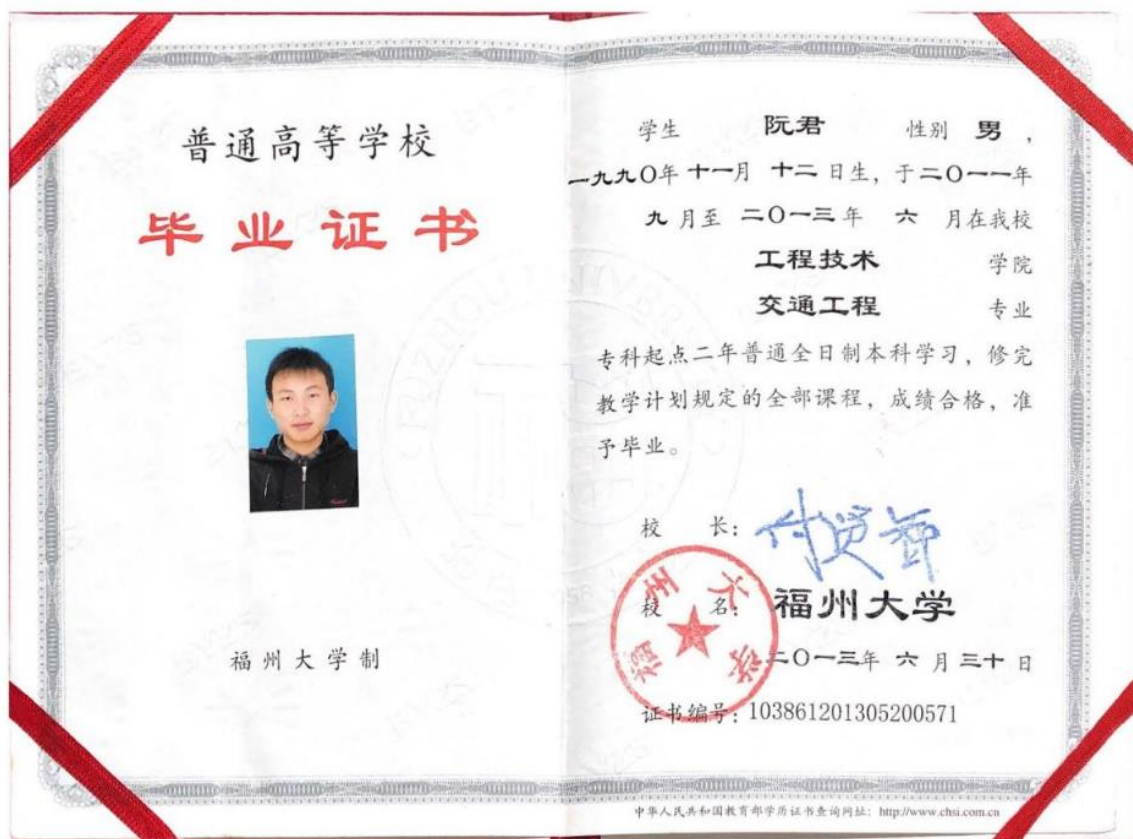 普通高等学校
毕业证书
福州大学制
学生 阮君 性别 男，
一九九〇年 十一月 十二 日生，于二〇一一年
九 月至 二〇一三年 六 月在我校
工程技术 学院
交通工程 专业
专科起点二年普通全日制本科学习，修完
教学计划规定的全部课程，成绩合格，准
予毕业。
校 长：
校 名：福州大学
二〇一三年 六 月 三十 日
证书编号：103861201305200571
中华人民共和国教育部学历证书查询网址：http://www.chsi.com.cn
福州大学
FUZHOU UNIVERSITY